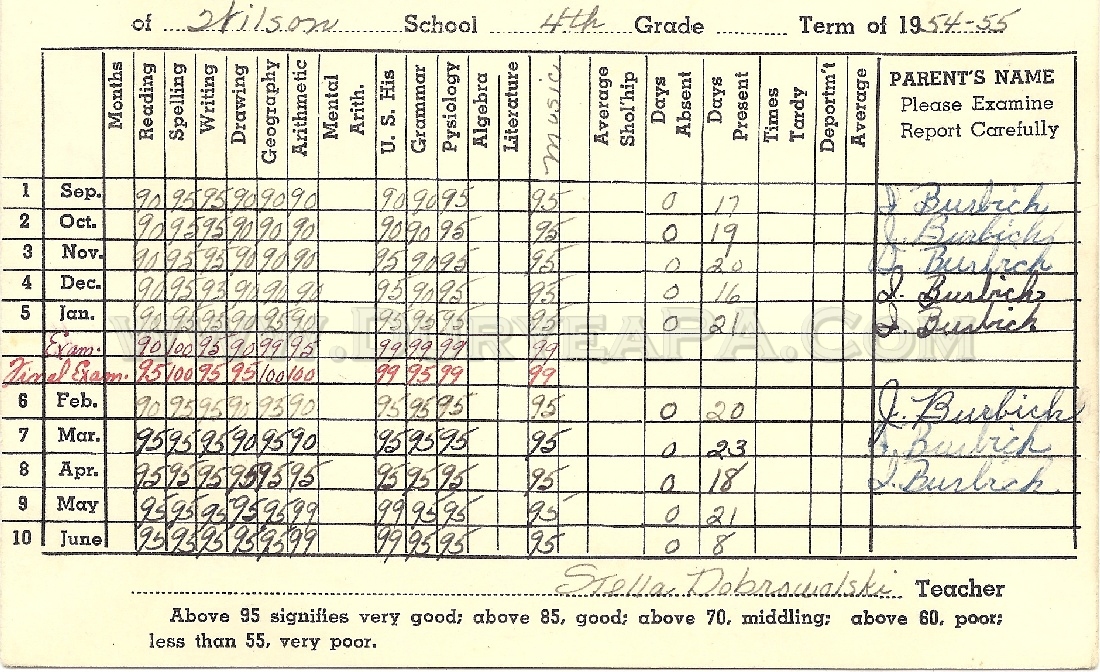 of Wilson School 4th Grade Term of 1954-55
Months Reading Spelling Writing Drawing Geography Arithmetic Mental Arith. U. S. His Grammar Pysiology Algebra Literature Music Average Shol'hip Days Absent Days Present Times Tardy Deportm't Average PARENT'S NAME
Please Examine
Report Carefully
1 Sep. 90 95 95 90 90 90 90 90 95 95 0 17 J Burbich
2 Oct. 90 95 95 90 90 90 90 90 95 95 0 19 J Burbich
3 Nov. 90 95 95 90 90 90 95 90 95 95 0 20 J Burbich
4 Dec. 90 95 95 90 90 90 95 90 95 95 0 16 J. Burbich
5 Jan. 90 95 95 90 95 90 95 95 95 95 0 21 J. Burbich
Exam. 90 100 95 90 99 95 99 99 99 99
Final Exam. 95 100 95 95 100 100 99 95 99 99
6 Feb. 90 95 95 90 95 90 95 95 95 95 0 20 J. Burbich
7 Mar. 95 95 95 90 95 90 95 95 95 95 0 23 J Burbich
8 Apr. 95 95 95 95 95 95 95 95 95 95 0 18 J. Burbich
9 May 95 95 95 95 95 99 99 95 95 95 0 21
10 June 95 95 95 95 95 99 99 95 95 95 0 8
www.DuryeaPA.com
Stella Dobrowalski Teacher
Above 95 signifies very good; above 85, good; above 70, middling; above 60, poor;
less than 55, very poor.